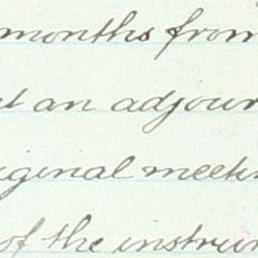 months from
an adjour
ginal meeti
of the instrum